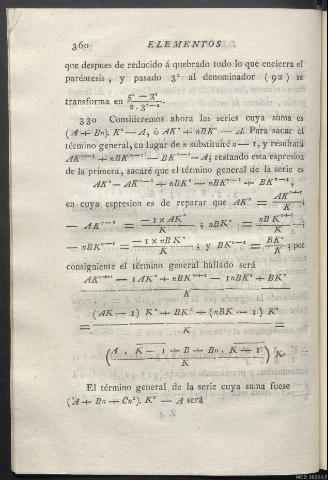 360 ELEMENTOS
que despues de reducido á quebrado todo lo que encierra el
paréntesis, y pasado 3² al denominador (92) se
transforma en (5ⁿ — 3ⁿ) / (2 . 3ⁿ⁻²).
330 Consideremos ahora las series cuya suma es
(A + Bn). Kⁿ — A, ó AKⁿ + nBKⁿ — A. Para sacar el
término general, en lugar de n substituiré n — 1, y resultará
AKⁿ⁻¹ + nBKⁿ⁻¹ — BKⁿ⁻¹ — A; restando esta espresion
de la primera, sacaré que el término general de la serie es
AKⁿ — AKⁿ⁻¹ + nBKⁿ — nBKⁿ⁻¹ + BKⁿ⁻¹,
en cuya espresion es de reparar que AKⁿ = AKⁿ⁺¹ / K;
— AKⁿ⁻¹ = — 1 × AKⁿ / K; nBKⁿ = nBKⁿ⁺¹ / K;
— nBKⁿ⁻¹ = — 1 × nBKⁿ / K; y BKⁿ⁻¹ = BKⁿ / K; por
consiguiente el término general hallado será
AKⁿ⁺¹ — 1AKⁿ + nBKⁿ⁺¹ — 1nBKⁿ + BKⁿ / K
= (AK — 1) Kⁿ + BKⁿ + (nBK — 1) Kⁿ / K
(A . K — 1 + B + Bn . K — 1 / K) Kⁿ.
El término general de la serie cuya suma fuese
(A + Bn + Cn²). Kⁿ — A será